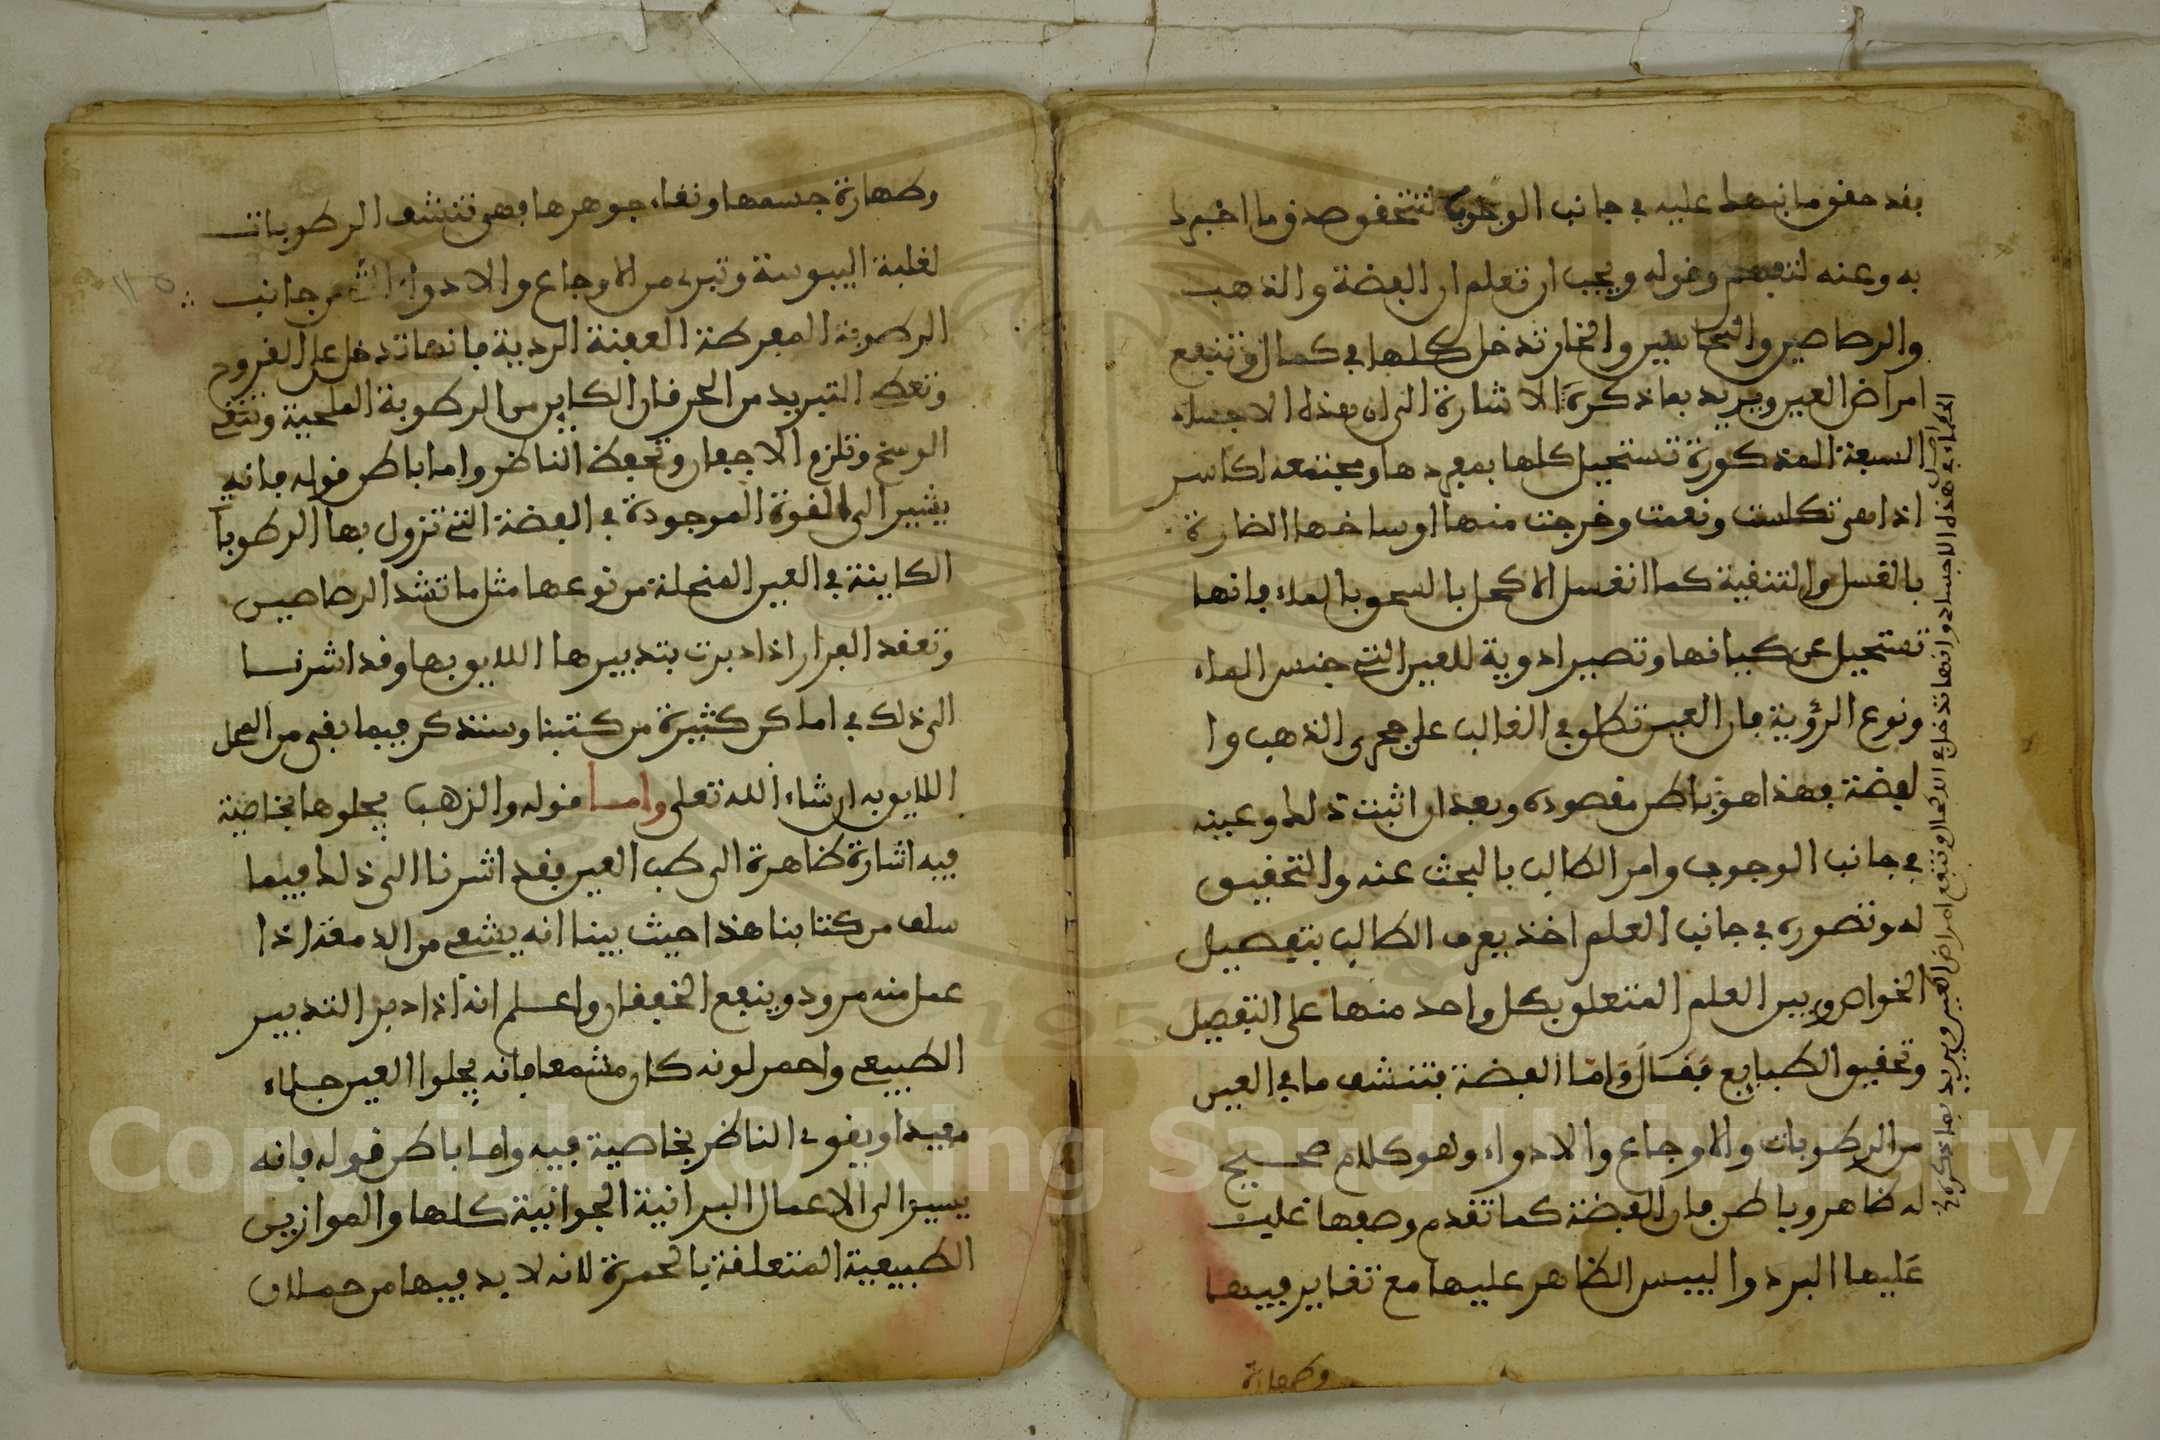 فقد حقق ما نبهنا عليه في جانب الوجوب لتتحقق صدق ما اخبرنا
به وعنه لتفهم وقوله ويجب ان تعلم ان الفضة والذهب
والرصاصين والنحاسين والخار تدخل كلها في كمال وتنفع
امراض العين ويريد بما ذكره الاشارة الى ان هذه الاجساد
السبعة المذكورة تستحيل كلها بمفردها ومجتمعه اكاسر
اذا هي تكلست ونعمت وخرجت منها اوساخها الضارة
بالغسل والتنقية كما انغسل الاكحل بالسحق بالماء فانها
تستحيل عن كيانها وتصير ادوية للعين التي جنس الماء
ونوع الرؤية فان العين تطلق في الغالب على حجري الذهب وا
لفضة فهذا هو باطن مقصوده وبعد ان اثبت ذلك وعينه
في جانب الوجوب وامر الطالب بالبحث عنه والتحقيق
له وتصوره في جانب العلم اخذ يعرف الطالب بتفصيل
الخواص ويبين العلم المتعلق بكل واحد منها على التفصيل
وتحقيق الطبايع فقال واما الفضة فتنشف ما في العين
من الرطوبات والاوجاع والادواء وهو كلام صحيح
له ظاهر وباطن فان الفضة كما تقدم وصفها غلبت
عليها البرد واليبس الظاهر عليها مع تغاير فيها
وطهارة
الحكماء في هذه الاجساد وانها تدخل في الاكحال وتنفع امراض العين ويريد بما ذكره
وطهارة جسمها ونقاء جوهرها فهي تنشف الرطوبات
لغلبة اليبوسة وتبرى من الاوجاع والادواء التي من جانب
الرطوبة المفرطة العفنة الردية فانها تدخل على القروح
وتعطي التبريد من الحرقان الكاين من الرطوبة الملحية وتنقي
الوسخ وتلزم الاجفان وتحفظ الناظر واما باطن قوله فانه
يشير الى القوة الموجودة في الفضة التي تزول بها الرطوبا
الكاينة في العين المنحلة من نوعها مثل ما تشد الرصاصين
وتعقد الفرار اذا دبرت بتدبيرها اللايق بها وقد اشرنا
الى ذلك في اماكن كثيرة من كتبنا وسنذكر فيما بقي من العمل
اللايق به ان شاء الله تعلى واما قوله والذهب يجلوها بخاصية
فيه اشارة ظاهرة الى طب العين فقد اشرنا الى ذلك فيما
سلف من كتابنا هذا حيث بينا انه يشفي من الدمعة اذا
عمل منه مرود وينفع الخفقان واعلم انه اذا دبر التدبير
الطبيعي واحمر لونه كان مشمعا فانه يجلوا العين جلاء
مفيدا ويقوي الناظر بخاصية فيه واما باطن قوله فانه
يسير الى الاعمال البرانية الجوانية كلها والموازين
الطبيعية المتعلقة بالحمرة لانه لا بد فيها من حملان
Copyright © King Saud University